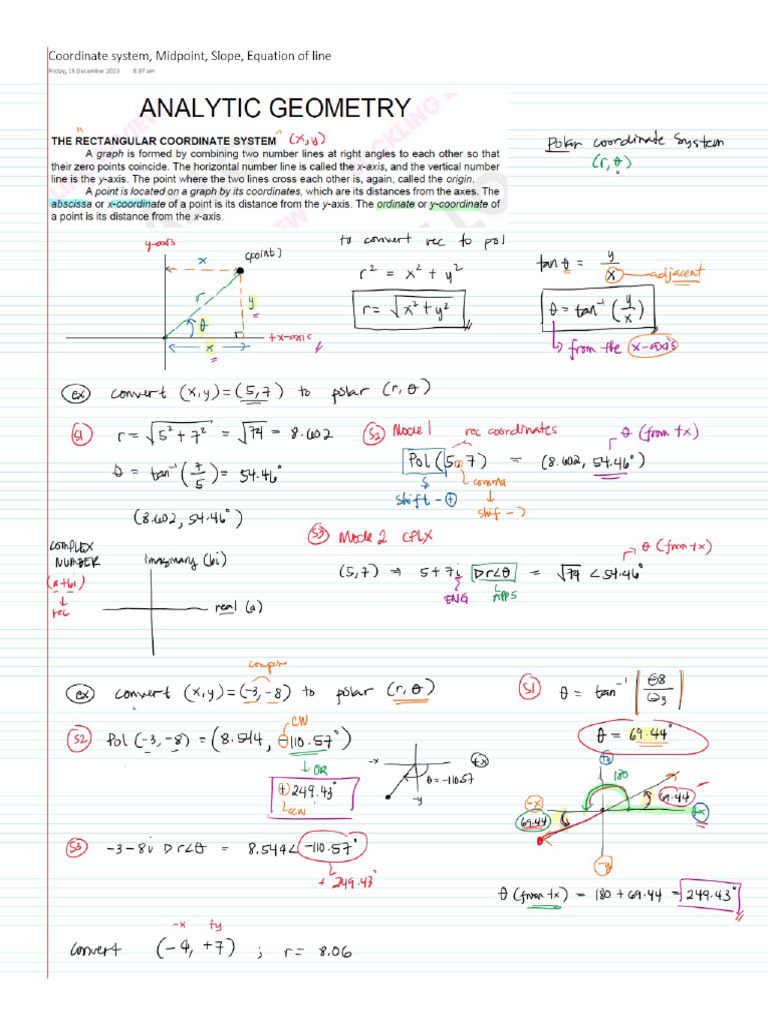 Coordinate system, Midpoint, Slope, Equation of line
Friday, 15 December 2023 8:07 am
ANALYTIC GEOMETRY
THE "RECTANGULAR COORDINATE SYSTEM" (x,y)
Polar coordinate system
(r, θ)
A graph is formed by combining two number lines at right angles to each other so that
their zero points coincide. The horizontal number line is called the x-axis, and the vertical number
line is the y-axis. The point where the two lines cross each other is, again, called the origin.
A point is located on a graph by its coordinates, which are its distances from the axes. The
abscissa or x-coordinate of a point is its distance from the y-axis. The ordinate or y-coordinate of
a point is its distance from the x-axis.
y-axis
x
(point)
r
y
θ
x
+x-axis
to convert rec to pol
r² = x² + y²
r = √x² + y²
tan θ = y/x
adjacent
θ = tan⁻¹ (y/x)
from the x-axis
ex convert (x,y) = (5,7) to polar (r, θ)
S1 r = √5² + 7² = √74 = 8.602
θ = tan⁻¹ (7/5) = 54.46°
(8.602, 54.46°)
S2 Mode 1 rec coordinates
θ (from +x)
Pol(5,7) = (8.602, 54.46°)
comma
shift - +
shift - )
S3 Mode 2 CPLX
θ (from +x)
(5,7) ⇒ 5+7i ▷r∠θ = √74 ∠54.46°
ENG
APPS
COMPLEX
NUMBER
(a+bi)
rec
Imaginary (bi)
real (a)
complex
ex convert (x,y) = (-3,-8) to polar (r, θ)
S2 Pol (-3,-8) = (8.544, -110.57°)
CW
OR
+249.43°
CCW
-x
+x
-y
θ = -110.57
S1 θ = tan⁻¹ |-8/-3|
θ = 69.44°
+y
180
69.44
-x
+x
69.44
-y
θ (from +x) = 180 + 69.44 = 249.43°
S3 -3-8i ▷r∠θ = 8.544∠ -110.57°
+ 249.43°
-x +y
convert (-4, +7) ; r = 8.06